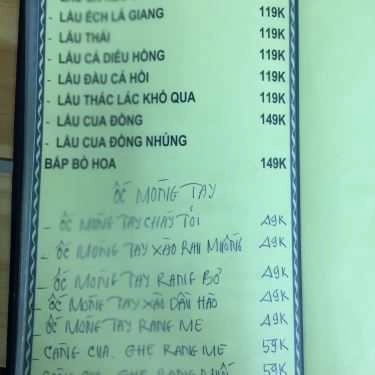 - LẨU ẾCH LÁ GIANG 119K
- LẨU THÁI 119K
- LẨU CÁ DIÊU HỒNG 119K
- LẨU ĐẦU CÁ HỒI 119K
- LẨU THÁC LÁC KHỔ QUA 119K
- LẨU CUA ĐỒNG 149K
- LẨU CUA ĐỒNG NHÚNG
BẮP BÒ HOA 149K
ỐC MÓNG TAY
- ỐC MÓNG TAY CHÁY TỎI 49K
- ỐC MÓNG TAY XÀO RAU MUỐNG 49K
- ỐC MÓNG TAY RANG BƠ 49K
- ỐC MÓNG TAY XÀO DẦU HÀO 49K
- ỐC MÓNG TAY RANG ME 49K
- CÀNG CUA, GHẸ RANG ME 59K
- CÀNG CUA, GHẸ RANG MUỐI 59K